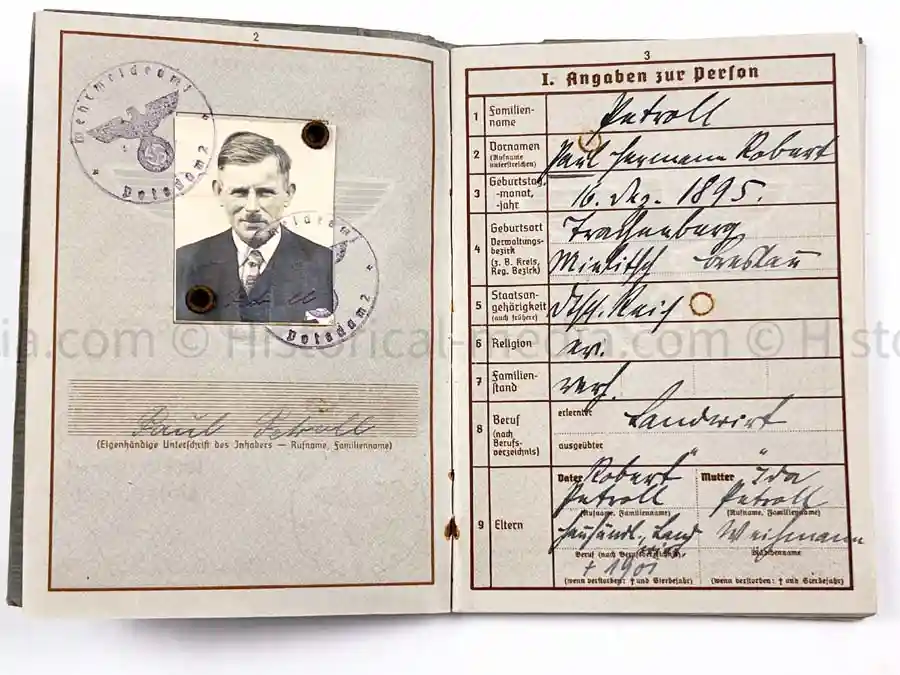 2
Wehrmeldeamt
Potsdam 2
Wehrmeldeamt
Potsdam 2
Paul Petroll
(Eigenhändige Unterschrift des Inhabers — Rufname, Familienname)
3
I. Angaben zur Person
1 Familien-
name
Petroll
2 Vornamen
(Rufname
unterstreichen)
Paul Hermann Robert
3 Geburtstag,
-monat,
-jahr
16. Dez. 1895.
4 Geburtsort
Verwaltungs-
bezirk
(z. B. Kreis,
Reg. Bezirk)
Trachenburg
Militsch Breslau
5 Staatsan-
gehörigkeit
(auch frühere)
Dtsch. Reich
6 Religion
ev.
7 Familien-
stand
verh.
8 Beruf
(nach
Berufs-
verzeichnis)
erlernter
Landwirt
ausgeübter
"
9 Eltern
Vater Robert
Petroll
(Rufname, Familienname)
Land
Beruf (nach Berufsverzeichnis)
† 1901
(wenn verstorben: † und Sterbejahr)
Mutter Ida
Petroll
(Rufname, Familienname)
Weihmann
Mädchenname
(wenn verstorben: † und Sterbejahr)
ia.com © Historical-media.com © Histo